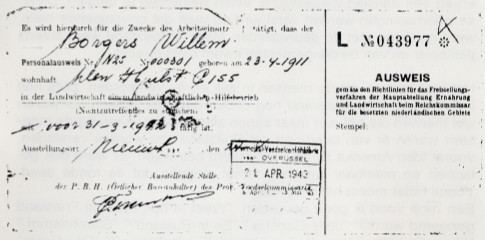 Es wird hierdurch für die Zwecke des Arbeitseinsatz tätigt, dass der
Borgers Willem
Personalausweis Nr N25 No 000301 geboren am 23-4-1911
wohnhaft den Hulst C 155
in der Landwirtschaft einem landwirtschaftlichen Hilfsbetrieb
(Nantzutreffendes zu streichen)
voor 31-3-1942 tätig ist.
Ausstellungsort den
OVERIJSSEL
21 APR 1943
Ausstellende Stelle
der P. B. H (Örtlicher Bureauhalter) des Prov.
L No 043977
AUSWEIS
gemäss den Richtlinien für das Freistellungs-
verfahren der Hauptabteilung Ernährung
und Landwirtschaft beim Reichskommissar
für die besetzten niederländischen Gebiete
Stempel: